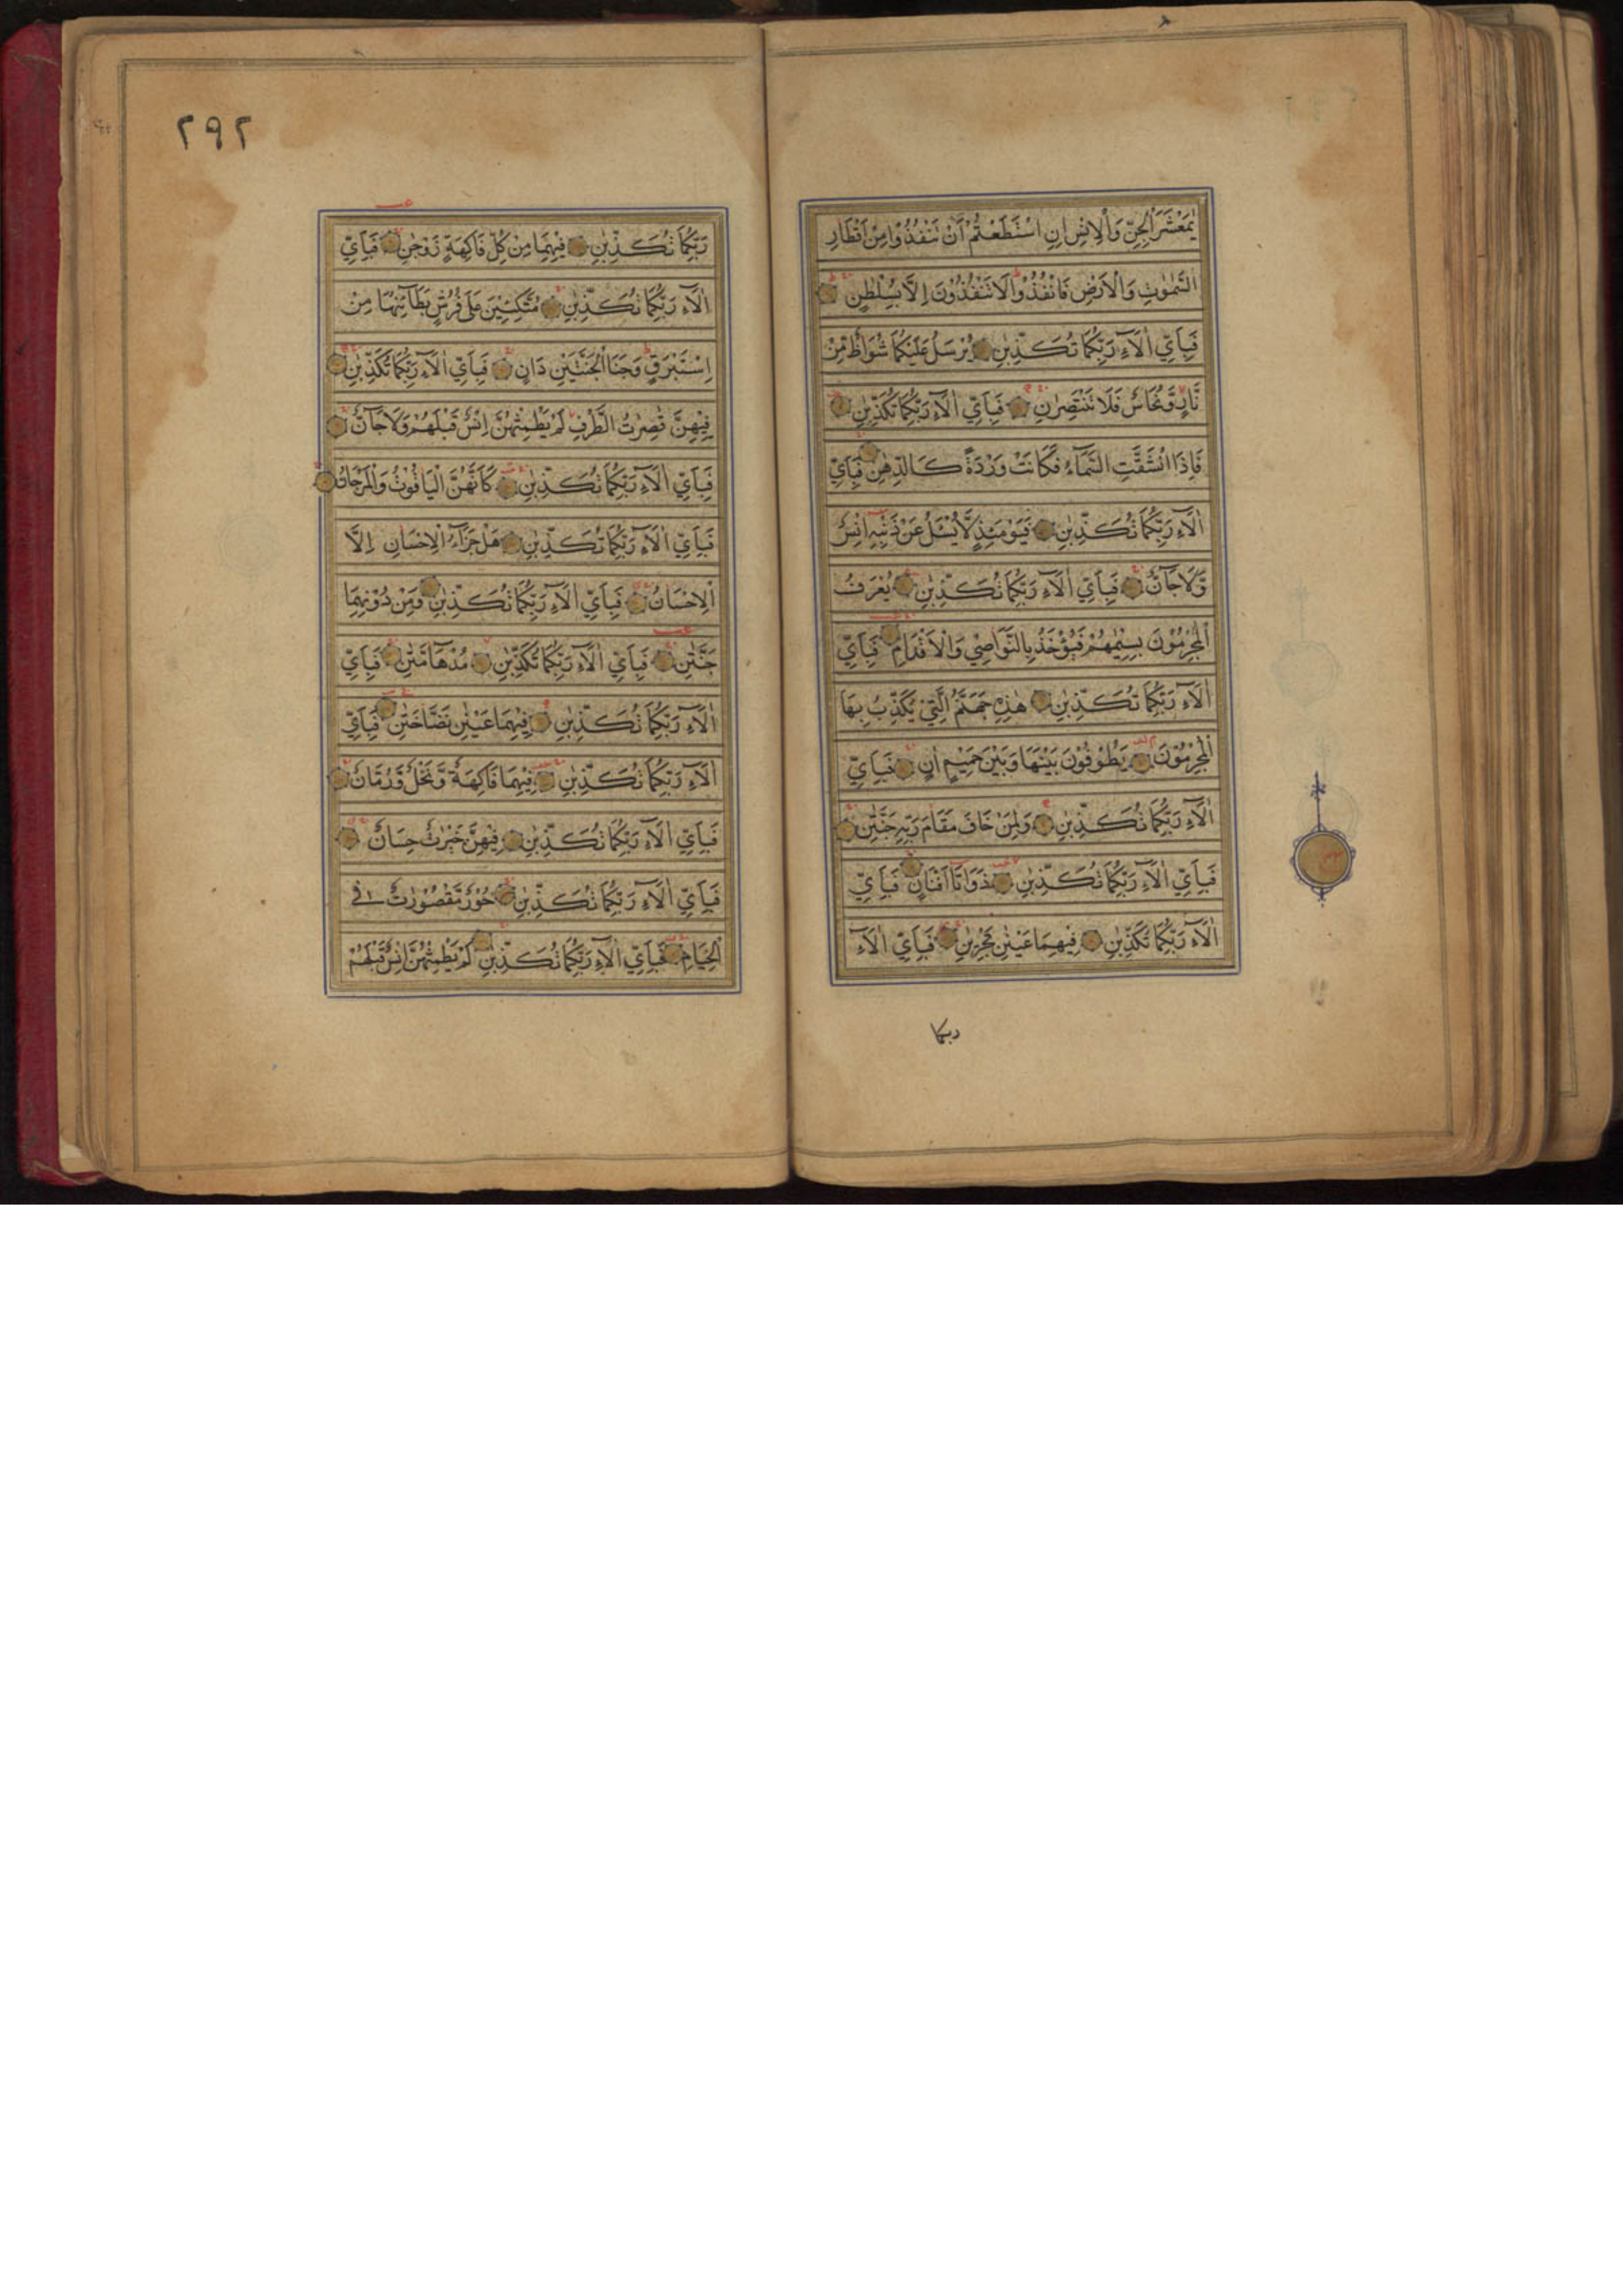 يٰمَعْشَرَ الْجِنِّ وَالْاِنْسِ اِنِ اسْتَطَعْتُمْ اَنْ تَنْفُذُوْا مِنْ اَقْطَارِ
السَّمٰوٰتِ وَالْاَرْضِ فَانْفُذُوْا لَا تَنْفُذُوْنَ اِلَّا بِسُلْطٰنٍ
فَبِاَيِّ اٰلَآءِ رَبِّكُمَا تُكَذِّبٰنِ يُرْسَلُ عَلَيْكُمَا شُوَاظٌ مِّنْ
نَّارٍ وَّنُحَاسٌ فَلَا تَنْتَصِرٰنِ فَبِاَيِّ اٰلَآءِ رَبِّكُمَا تُكَذِّبٰنِ
فَاِذَا انْشَقَّتِ السَّمَآءُ فَكَانَتْ وَرْدَةً كَالدِّهَانِ فَبِاَيِّ
اٰلَآءِ رَبِّكُمَا تُكَذِّبٰنِ فَيَوْمَئِذٍ لَّا يُسْئَلُ عَنْ ذَنْبِهٖ اِنْسٌ
وَّلَا جَآنٌّ فَبِاَيِّ اٰلَآءِ رَبِّكُمَا تُكَذِّبٰنِ يُعْرَفُ
الْمُجْرِمُوْنَ بِسِيْمٰهُمْ فَيُؤْخَذُ بِالنَّوَاصِيْ وَالْاَقْدَامِ فَبِاَيِّ
اٰلَآءِ رَبِّكُمَا تُكَذِّبٰنِ هٰذِهٖ جَهَنَّمُ الَّتِيْ يُكَذِّبُ بِهَا
الْمُجْرِمُوْنَ يَطُوْفُوْنَ بَيْنَهَا وَبَيْنَ حَمِيْمٍ اٰنٍ فَبِاَيِّ
اٰلَآءِ رَبِّكُمَا تُكَذِّبٰنِ وَلِمَنْ خَافَ مَقَامَ رَبِّهٖ جَنَّتٰنِ
فَبِاَيِّ اٰلَآءِ رَبِّكُمَا تُكَذِّبٰنِ ذَوَاتَا اَفْنَانٍ فَبِاَيِّ
اٰلَآءِ رَبِّكُمَا تُكَذِّبٰنِ فِيْهِمَا عَيْنٰنِ تَجْرِيٰنِ فَبِاَيِّ اٰلَآءِ
ربكما
٢٩٢
رَبِّكُمَا تُكَذِّبٰنِ فِيْهِمَا مِنْ كُلِّ فَاكِهَةٍ زَوْجٰنِ فَبِاَيِّ
اٰلَآءِ رَبِّكُمَا تُكَذِّبٰنِ مُتَّكِئِيْنَ عَلٰى فُرُشٍ بَطَآئِنُهَا مِنْ
اِسْتَبْرَقٍ وَجَنَا الْجَنَّتَيْنِ دَانٍ فَبِاَيِّ اٰلَآءِ رَبِّكُمَا تُكَذِّبٰنِ
فِيْهِنَّ قٰصِرٰتُ الطَّرْفِ لَمْ يَطْمِثْهُنَّ اِنْسٌ قَبْلَهُمْ وَلَا جَآنٌّ
فَبِاَيِّ اٰلَآءِ رَبِّكُمَا تُكَذِّبٰنِ كَاَنَّهُنَّ الْيَاقُوْتُ وَالْمَرْجَانُ
فَبِاَيِّ اٰلَآءِ رَبِّكُمَا تُكَذِّبٰنِ هَلْ جَزَآءُ الْاِحْسَانِ اِلَّا
الْاِحْسَانُ فَبِاَيِّ اٰلَآءِ رَبِّكُمَا تُكَذِّبٰنِ وَمِنْ دُوْنِهِمَا
جَنَّتٰنِ فَبِاَيِّ اٰلَآءِ رَبِّكُمَا تُكَذِّبٰنِ مُدْهَآمَّتٰنِ فَبِاَيِّ
اٰلَآءِ رَبِّكُمَا تُكَذِّبٰنِ فِيْهِمَا عَيْنٰنِ نَضَّاخَتٰنِ فَبِاَيِّ
اٰلَآءِ رَبِّكُمَا تُكَذِّبٰنِ فِيْهِمَا فَاكِهَةٌ وَّنَخْلٌ وَّرُمَّانٌ
فَبِاَيِّ اٰلَآءِ رَبِّكُمَا تُكَذِّبٰنِ فِيْهِنَّ خَيْرٰتٌ حِسَانٌ
فَبِاَيِّ اٰلَآءِ رَبِّكُمَا تُكَذِّبٰنِ حُوْرٌ مَّقْصُوْرٰتٌ فِي
الْخِيَامِ فَبِاَيِّ اٰلَآءِ رَبِّكُمَا تُكَذِّبٰنِ لَمْ يَطْمِثْهُنَّ اِنْسٌ قَبْلَهُمْ